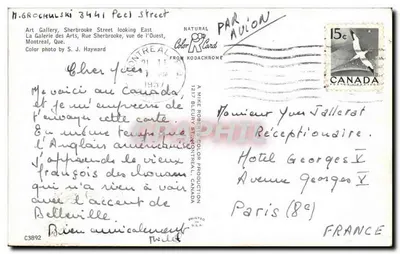 M. GROCHULSKI 3441 Peel Street
Art Gallery, Sherbrooke Street looking East
La Galerie des Arts, Rue Sherbrooke, vue de l'Ouest,
Montreal, Que.
Color photo by S. J. Hayward
NATURAL
Color Card
FROM KODACHROME
PAR
AVION
MONTREAL
1957
15c
CANADA
Cher Yves,
Me voici au Canada
et je m'empresse de
t'envoyer cette carte.
En même temps que
l'Anglais américanisé
j'apprends le vieux
françois des chouans
qui n'a rien à voir
avec l'accent de
Belleville.
Bien amicalement
A MIKE ROBERTS COLOR PRODUCTION
1217 BLEURY ST. MONTREAL, CANADA
Monsieur Yves Jallerat
Réceptionnaire.
Hotel Georges V
Avenue Georges V
Paris (8e)
FRANCE
C3892
PRINTED
IN
U.S.A.